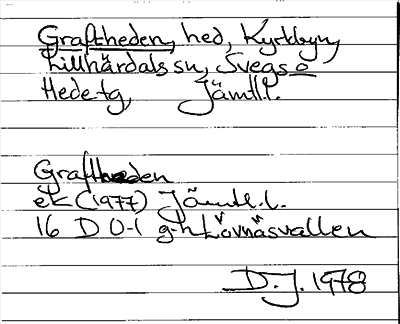 Graftheden, hed, Kyrkbyn,
Lillhärdals sn, Svegs o
Hede tg, Jämtl.l.
Graftheden
ek (1977) Jämtl.l.
16 D 0-1 g-h Lövnäsvallen
D.J. 1978